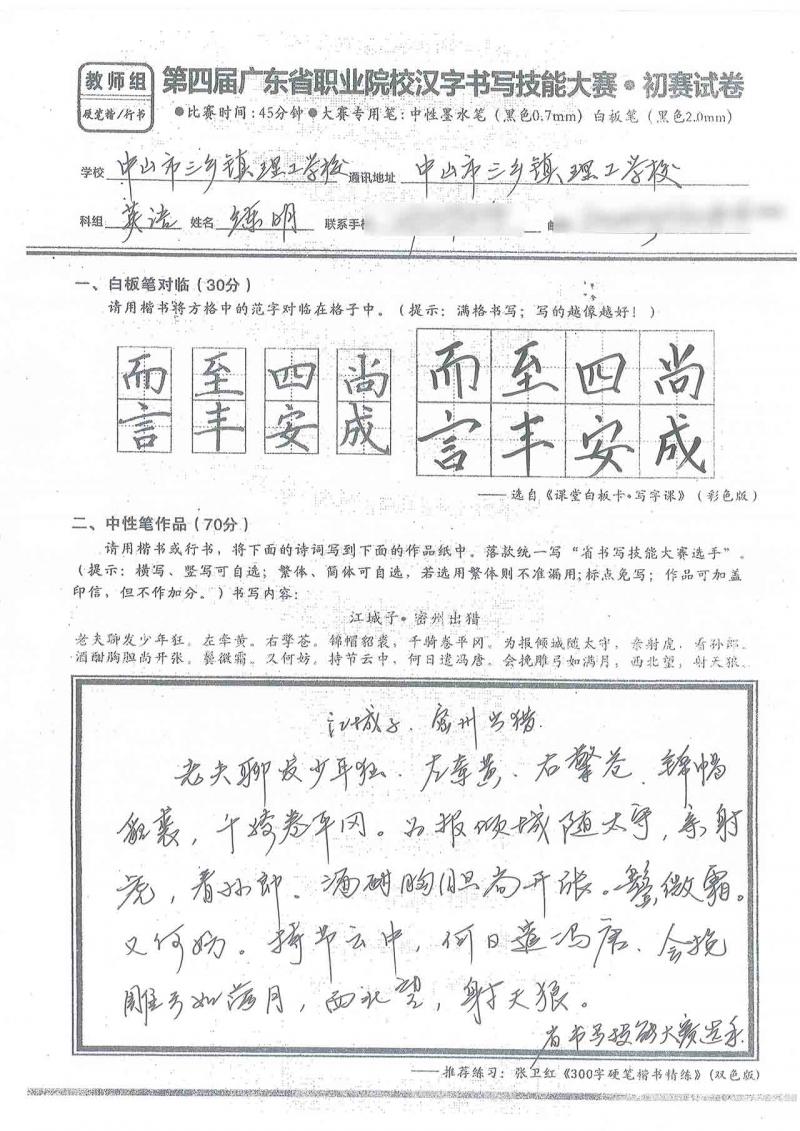 教师组
硬笔楷/行书
第四届广东省职业院校汉字书写技能大赛•初赛试卷
●比赛时间:45分钟●大赛专用笔:中性墨水笔(黑色0.7mm)白板笔(黑色2.0mm)
学校 中山市三乡镇理工学校 通讯地址 中山市三乡镇理工学校
科组 英语 姓名 练明 联系手机
一、白板笔对临(30分)
请用楷书将方格中的范字对临在格子中。(提示:满格书写;写的越像越好!)
而 至 四 尚 而 至 四 尚
言 丰 安 成 言 丰 安 成
——选自《课堂白板卡•写字课》(彩色版)
二、中性笔作品(70分)
请用楷书或行书,将下面的诗词写到下面的作品纸中。落款统一写“省书写技能大赛选手”。
(提示:横写、竖写可自选;繁体、简体可自选,若选用繁体则不准漏用;标点免写;作品可加盖
印信,但不作加分。)书写内容:
江城子•密州出猎
老夫聊发少年狂,左牵黄。右擎苍。锦帽貂裘,千骑卷平冈。为报倾城随太守,亲射虎,看孙郎。
酒酣胸胆尚开张。鬓微霜。又何妨。持节云中,何日遣冯唐。会挽雕弓如满月,西北望,射天狼。
江城子．密州出猎．
老夫聊发少年狂、左牵黄、右擎苍、锦帽
貂裘，千骑卷平冈。为报倾城随太守，亲射
虎，看孙郎．酒酣胸胆尚开张。鬓微霜。
又何妨。持节云中，何日遣冯唐．会挽
雕弓如满月，西北望，射天狼。
省书写技能大赛选手
——推荐练习:张卫红《300字硬笔楷书精练》(双色版)